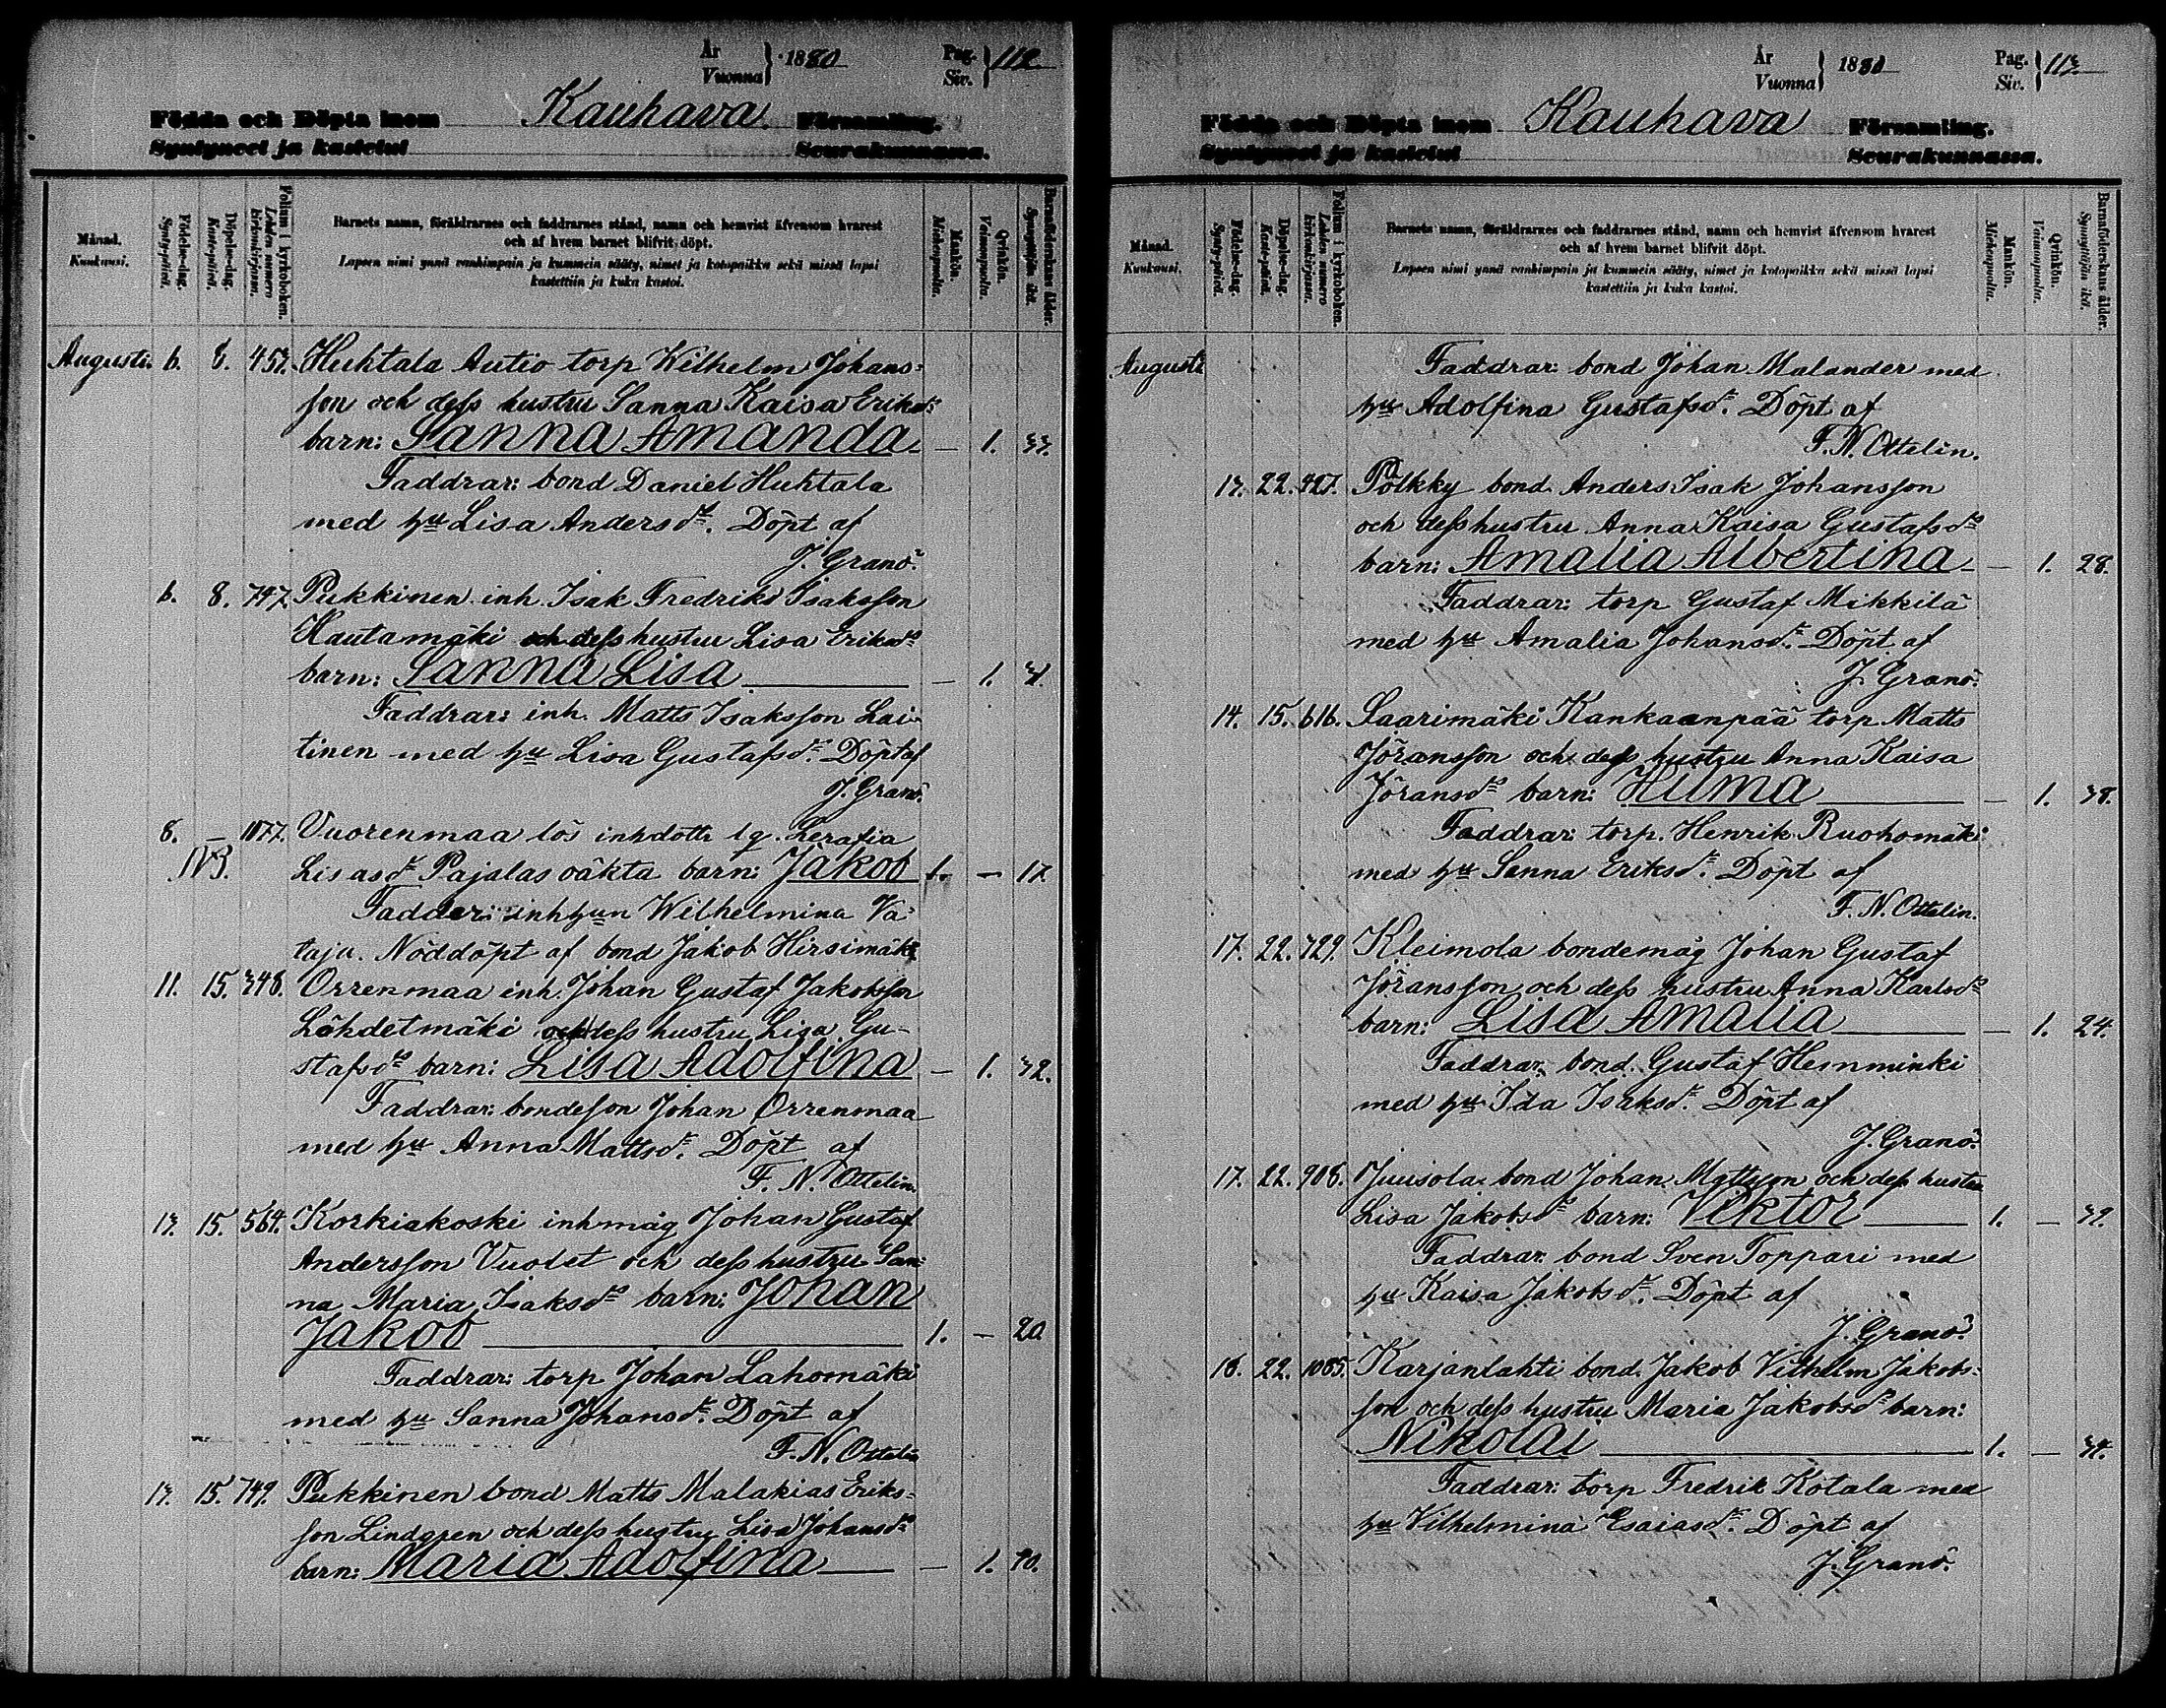 År
Vuonna } 1880
Pag.
Siv. } 112.
Födda och Döpta inom Kauhava Församling.
Syntyneet ja kastetut Seurakunnassa.
Månad.
Kuukausi.
Födelse-dag.
Synty-päivä.
Döpelse-dag.
Kaste-päivä.
Folium i kyrkoboken.
Lehden numero kirkonkirjassa.
Barnets namn, föräldrarnes och faddrarnes stånd, namn och hemvist äfvensom hvarest
och af hvem barnet blifvit döpt.
Lapsen nimi ynnä vanhimpain ja kummein sääty, nimet ja kotopaikka sekä missä lapsi
kastettiin ja kuka kastoi.
Mankön.
Miehenpuolta.
Qvinkön.
Vaimonpuolta.
Barnföderskans ålder.
Synnyttäjän ikä.
Augusti. 6. 8. 453. Huhtala Autio torp Wilhelm Johans-
son och dess hustru Sanna Kaisa Eriksds
barn: Sanna Amanda — 1. 33.
Faddrar: bond Daniel Huhtala
med hu Lisa Andersdr. Döpt af
J. Granö.
6. 8. 747. Pukkinen inh. Isak Fredriks Isaksson
Hautamäki och dess hustru Lisa Eriksds
barn: Sanna Lisa — 1.
Faddrar: inh. Matts Isaksson Lai-
tinen med hu Lisa Gustafsdr. Döpt af
J. Granö.
8. — 1077. Vuorenmaa lös inhdottr lg. Serafia
Lisasdr Pajalas oäkta barn: Jakob 1. — 17.
Fadder: inhhun Wilhelmina Va-
taja. Nöddöpt af bond Jakob Hirsimäki
11. 15. 348. Orrenmaa inh. Johan Gustaf Jakobsson
Lähdetmäki och dess hustru Lisa Gu-
stafsds barn: Lisa Adolfina — 1. 32.
Faddrar: bondeson Johan Orrenmaa
med hu Anna Mattsdr. Döpt af
F. N. Ottelin.
13. 15. 564. Korkiakoski inhmåg Johan Gustaf
Andersson Vuolet och dess hustru San-
na Maria Isaksds barn: Johan
Jakob 1. — 20.
Faddrar: torp Johan Lahomäki
med hu Sanna Johansdr. Döpt af
F. N. Ottelin
13. 15. 749. Pukkinen bond Matts Malakias Eriks-
son Lindgren och dess hustru Lisa Johansds
barn: Maria Adolfina — 1. 40.
År
Vuonna } 1880
Pag.
Siv. } 113.
Födda och Döpta inom Kauhava Församling.
Syntyneet ja kastetut Seurakunnassa.
Månad.
Kuukausi.
Födelse-dag.
Synty-päivä.
Döpelse-dag.
Kaste-päivä.
Folium i kyrkoboken.
Lehden numero kirkonkirjassa.
Barnets namn, föräldrarnes och faddrarnes stånd, namn och hemvist äfvensom hvarest
och af hvem barnet blifvit döpt.
Lapsen nimi ynnä vanhimpain ja kummein sääty, nimet ja kotopaikka sekä missä lapsi
kastettiin ja kuka kastoi.
Mankön.
Miehenpuolta.
Qvinkön.
Vaimonpuolta.
Barnföderskans ålder.
Synnyttäjän ikä.
Augusti Faddrar: bond Johan Malander med
hu Adolfina Gustafsdr. Döpt af
F. N. Ottelin.
13. 22. 427. Pölkky bond. Anders Isak Johansson
och dess hustru Anna Kaisa Gustafsds
barn: Amalia Albertina — 1. 28.
Faddrar: torp Gustaf Mikkilä
med hu Amalia Johansdr. Döpt af
J. Granö.
14. 15. 616. Saarimäki Kankaanpää torp Matts
Jöransson och dess hustru Anna Kaisa
Jöransds barn: Hilma — 1. 38.
Faddrar: torp. Henrik Ruohomäki
med hu Sanna Eriksdr. Döpt af
F. N. Ottelin.
17. 22. 729. Kleimola bondemåg Johan Gustaf
Jöransson och dess hustru Anna Karlsds
barn: Lisa Amalia — 1. 24.
Faddrar: bond. Gustaf Hemminki
med hu Ida Isaksdr. Döpt af
J. Granö.
17. 22. 908. Juusola bond Johan Mattsson och dess hustru
Lisa Jakobsds barn: Viktor 1. — 39.
Faddrar: bond Sven Toppari med
hu Kaisa Jakobsdr. Döpt af
J. Granö.
18. 22. 1085. Karjanlahti bond. Jakob Vilhelm Jakobs-
son och dess hustru Maria Jakobsds barn:
Nikolai 1. — 34.
Faddrar: torp Fredrik Kotala med
hu Vilhelmina Esaiasdr. Döpt af
J. Granö.